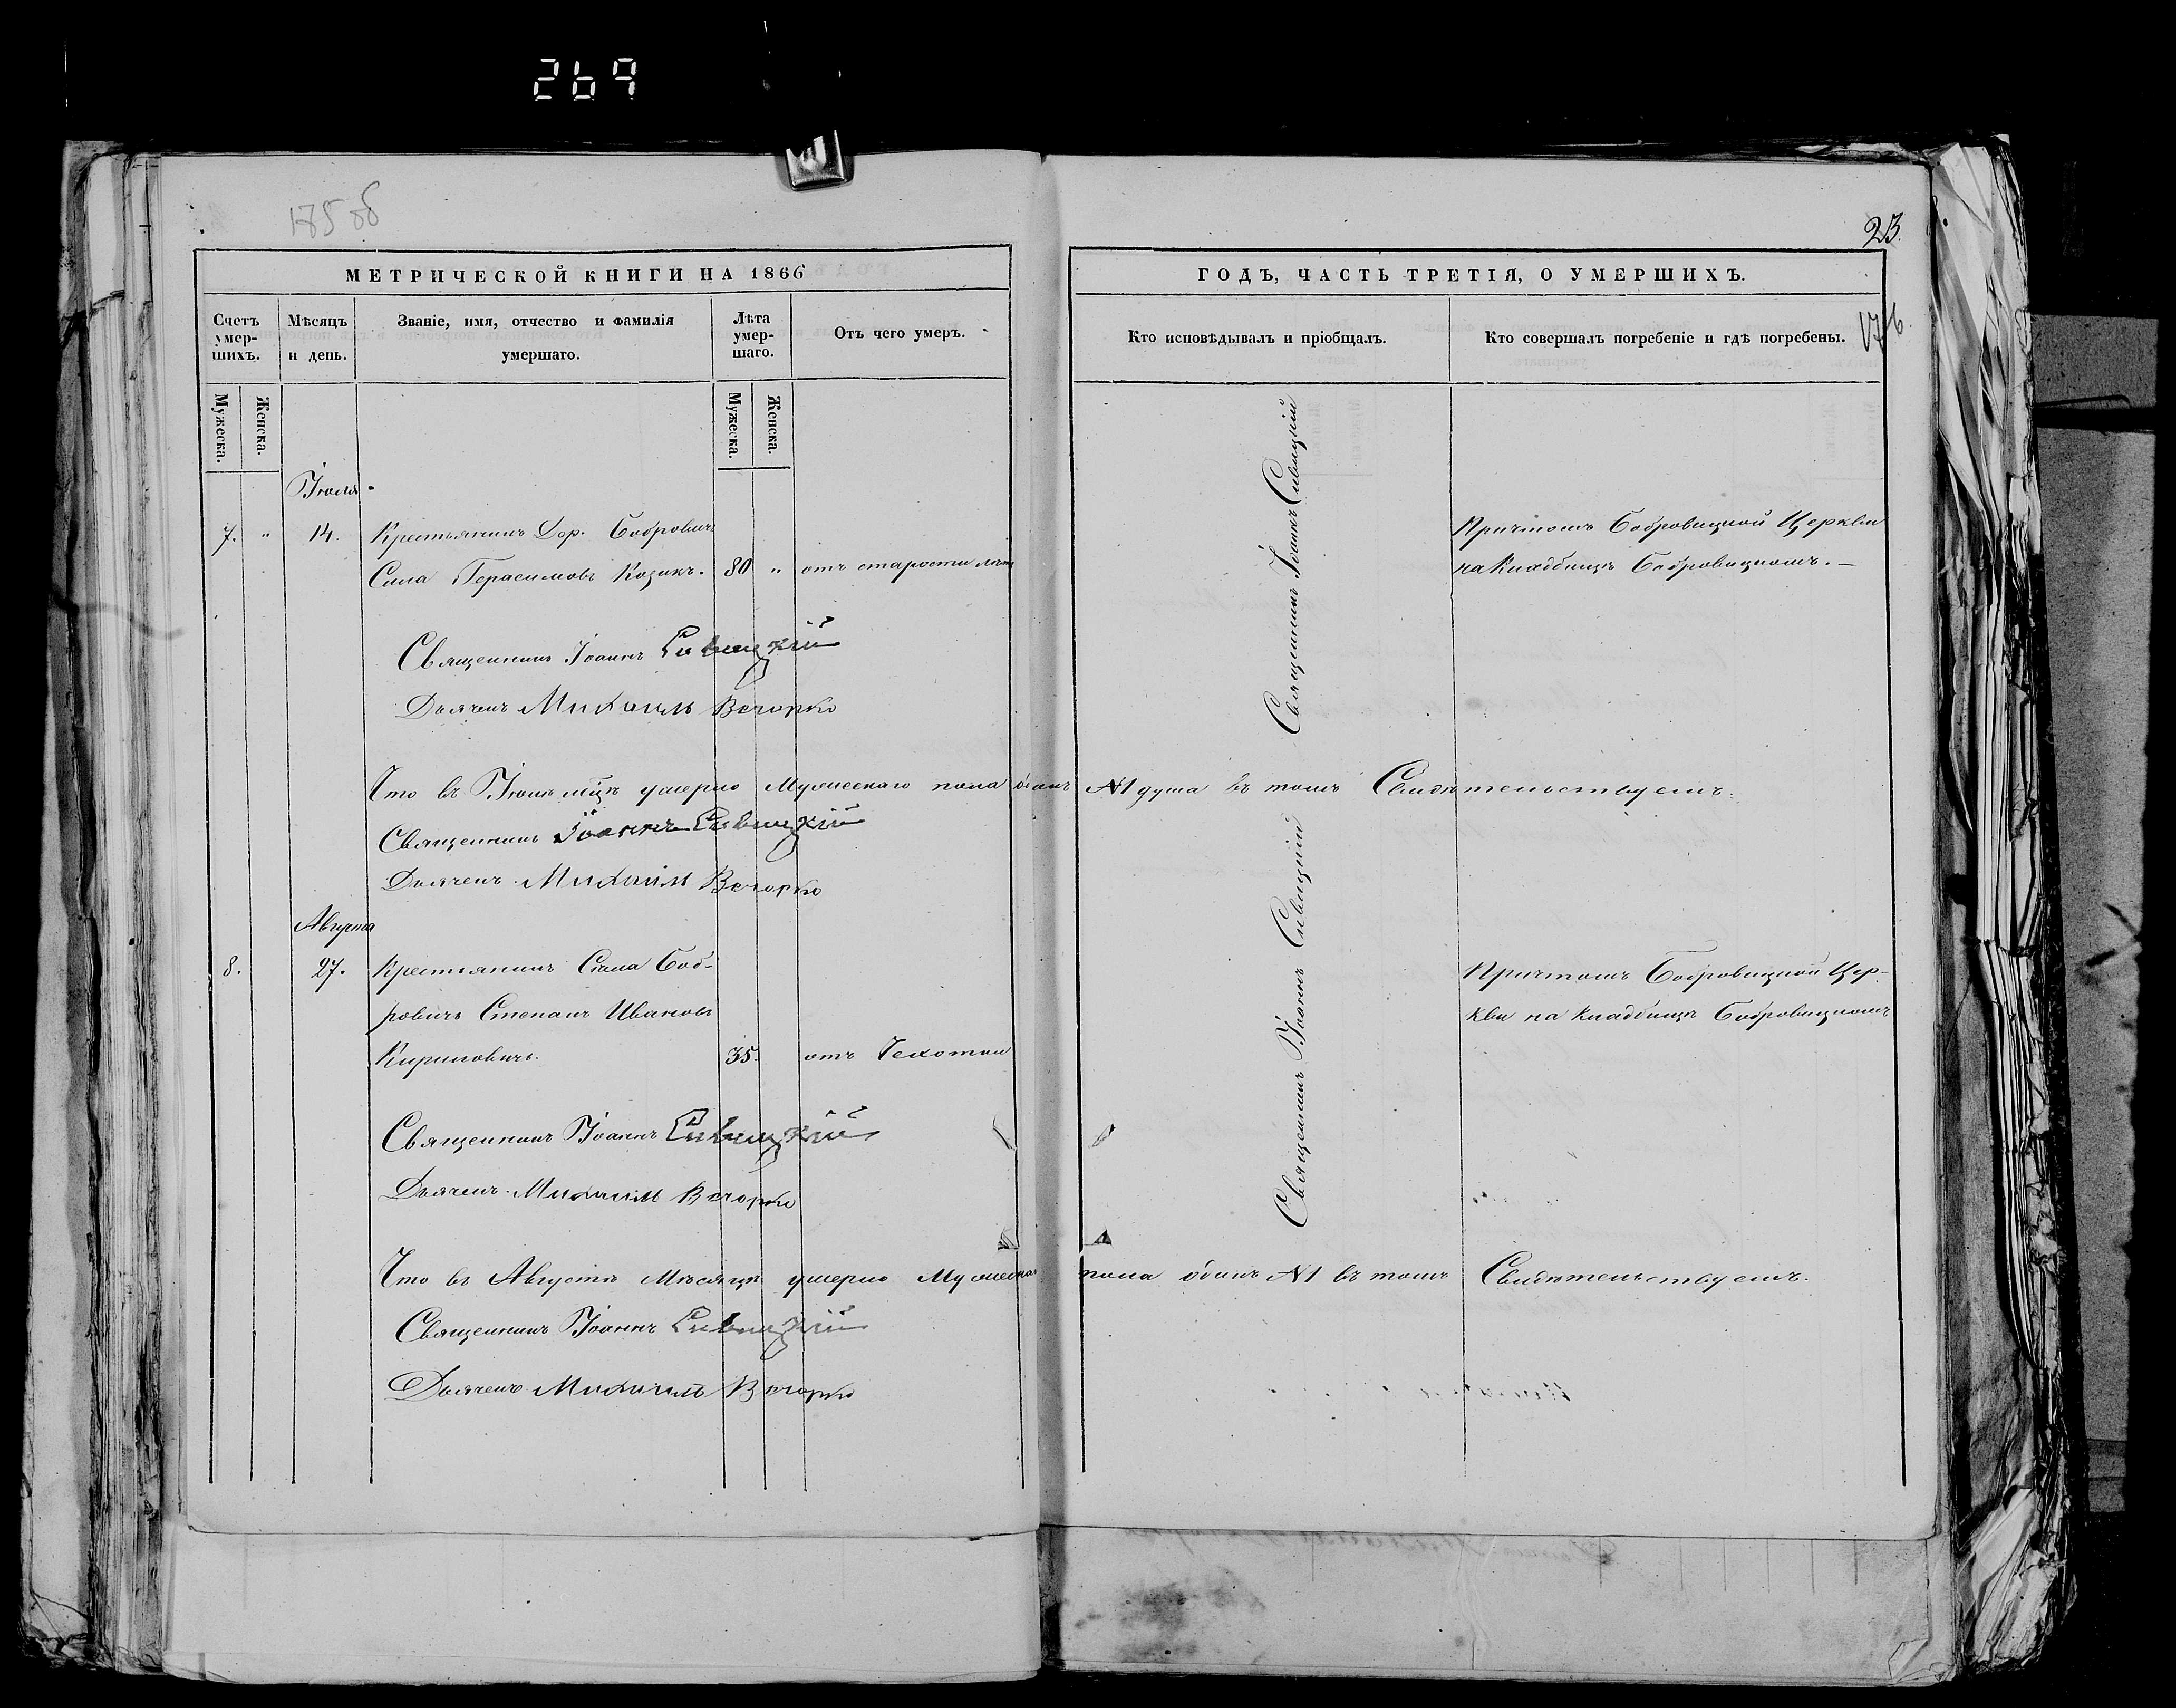 269
175 об
23.
176.
МЕТРИЧЕСКОЙ КНИГИ НА 1866
ГОДЪ, ЧАСТЬ ТРЕТІЯ, О УМЕРШИХЪ.
Счетъ умер-шихъ.
Мѣсяцъ и день.
Званіе, имя, отчество и фамилія умершаго.
Лѣта умер-шаго.
Отъ чего умеръ.
Кто исповѣдывалъ и пріобщалъ.
Кто совершалъ погребеніе и гдѣ погребены.
Мужеска.
Женска.
Мужеска.
Женска.
Іюля
7. " 14. Крестьянинъ Дер. Бобровичъ
Сила Герасимовъ Козикъ. 80 " отъ старости лѣтъ
Священникъ Іоаннъ Сивицкій
Причтомъ Бобровицкой Церкви
на Кладбищѣ Бобровицкомъ.
Священникъ Іоаннъ Сивицкій
Дьячекъ Михаилъ Вечорко
Что въ Іюлѣ мцѣ умерло Мужескаго пола одинъ №1 душа въ томъ Свидѣтельствуемъ:
Священникъ Іоаннъ Сивицкій
Дьячекъ Михаилъ Вечорко
Августа
8. 27. Крестьянинъ Села Боб-
ровичъ Степанъ Ивановъ
Кириловичъ. 35. отъ Чехотки
Священникъ Іоаннъ Сивицкій
Причтомъ Бобровицкой Цер-
кви на кладбищѣ Бобровицкомъ
Священникъ Іоаннъ Сивицкій
Дьячекъ Михаилъ Вечорко
Что въ Августѣ Мѣсяцѣ умерло Мужеска пола одинъ №1 въ томъ Свидѣтельствуемъ.
Священникъ Іоаннъ Сивицкій
Дьячекъ Михаилъ Вечорко